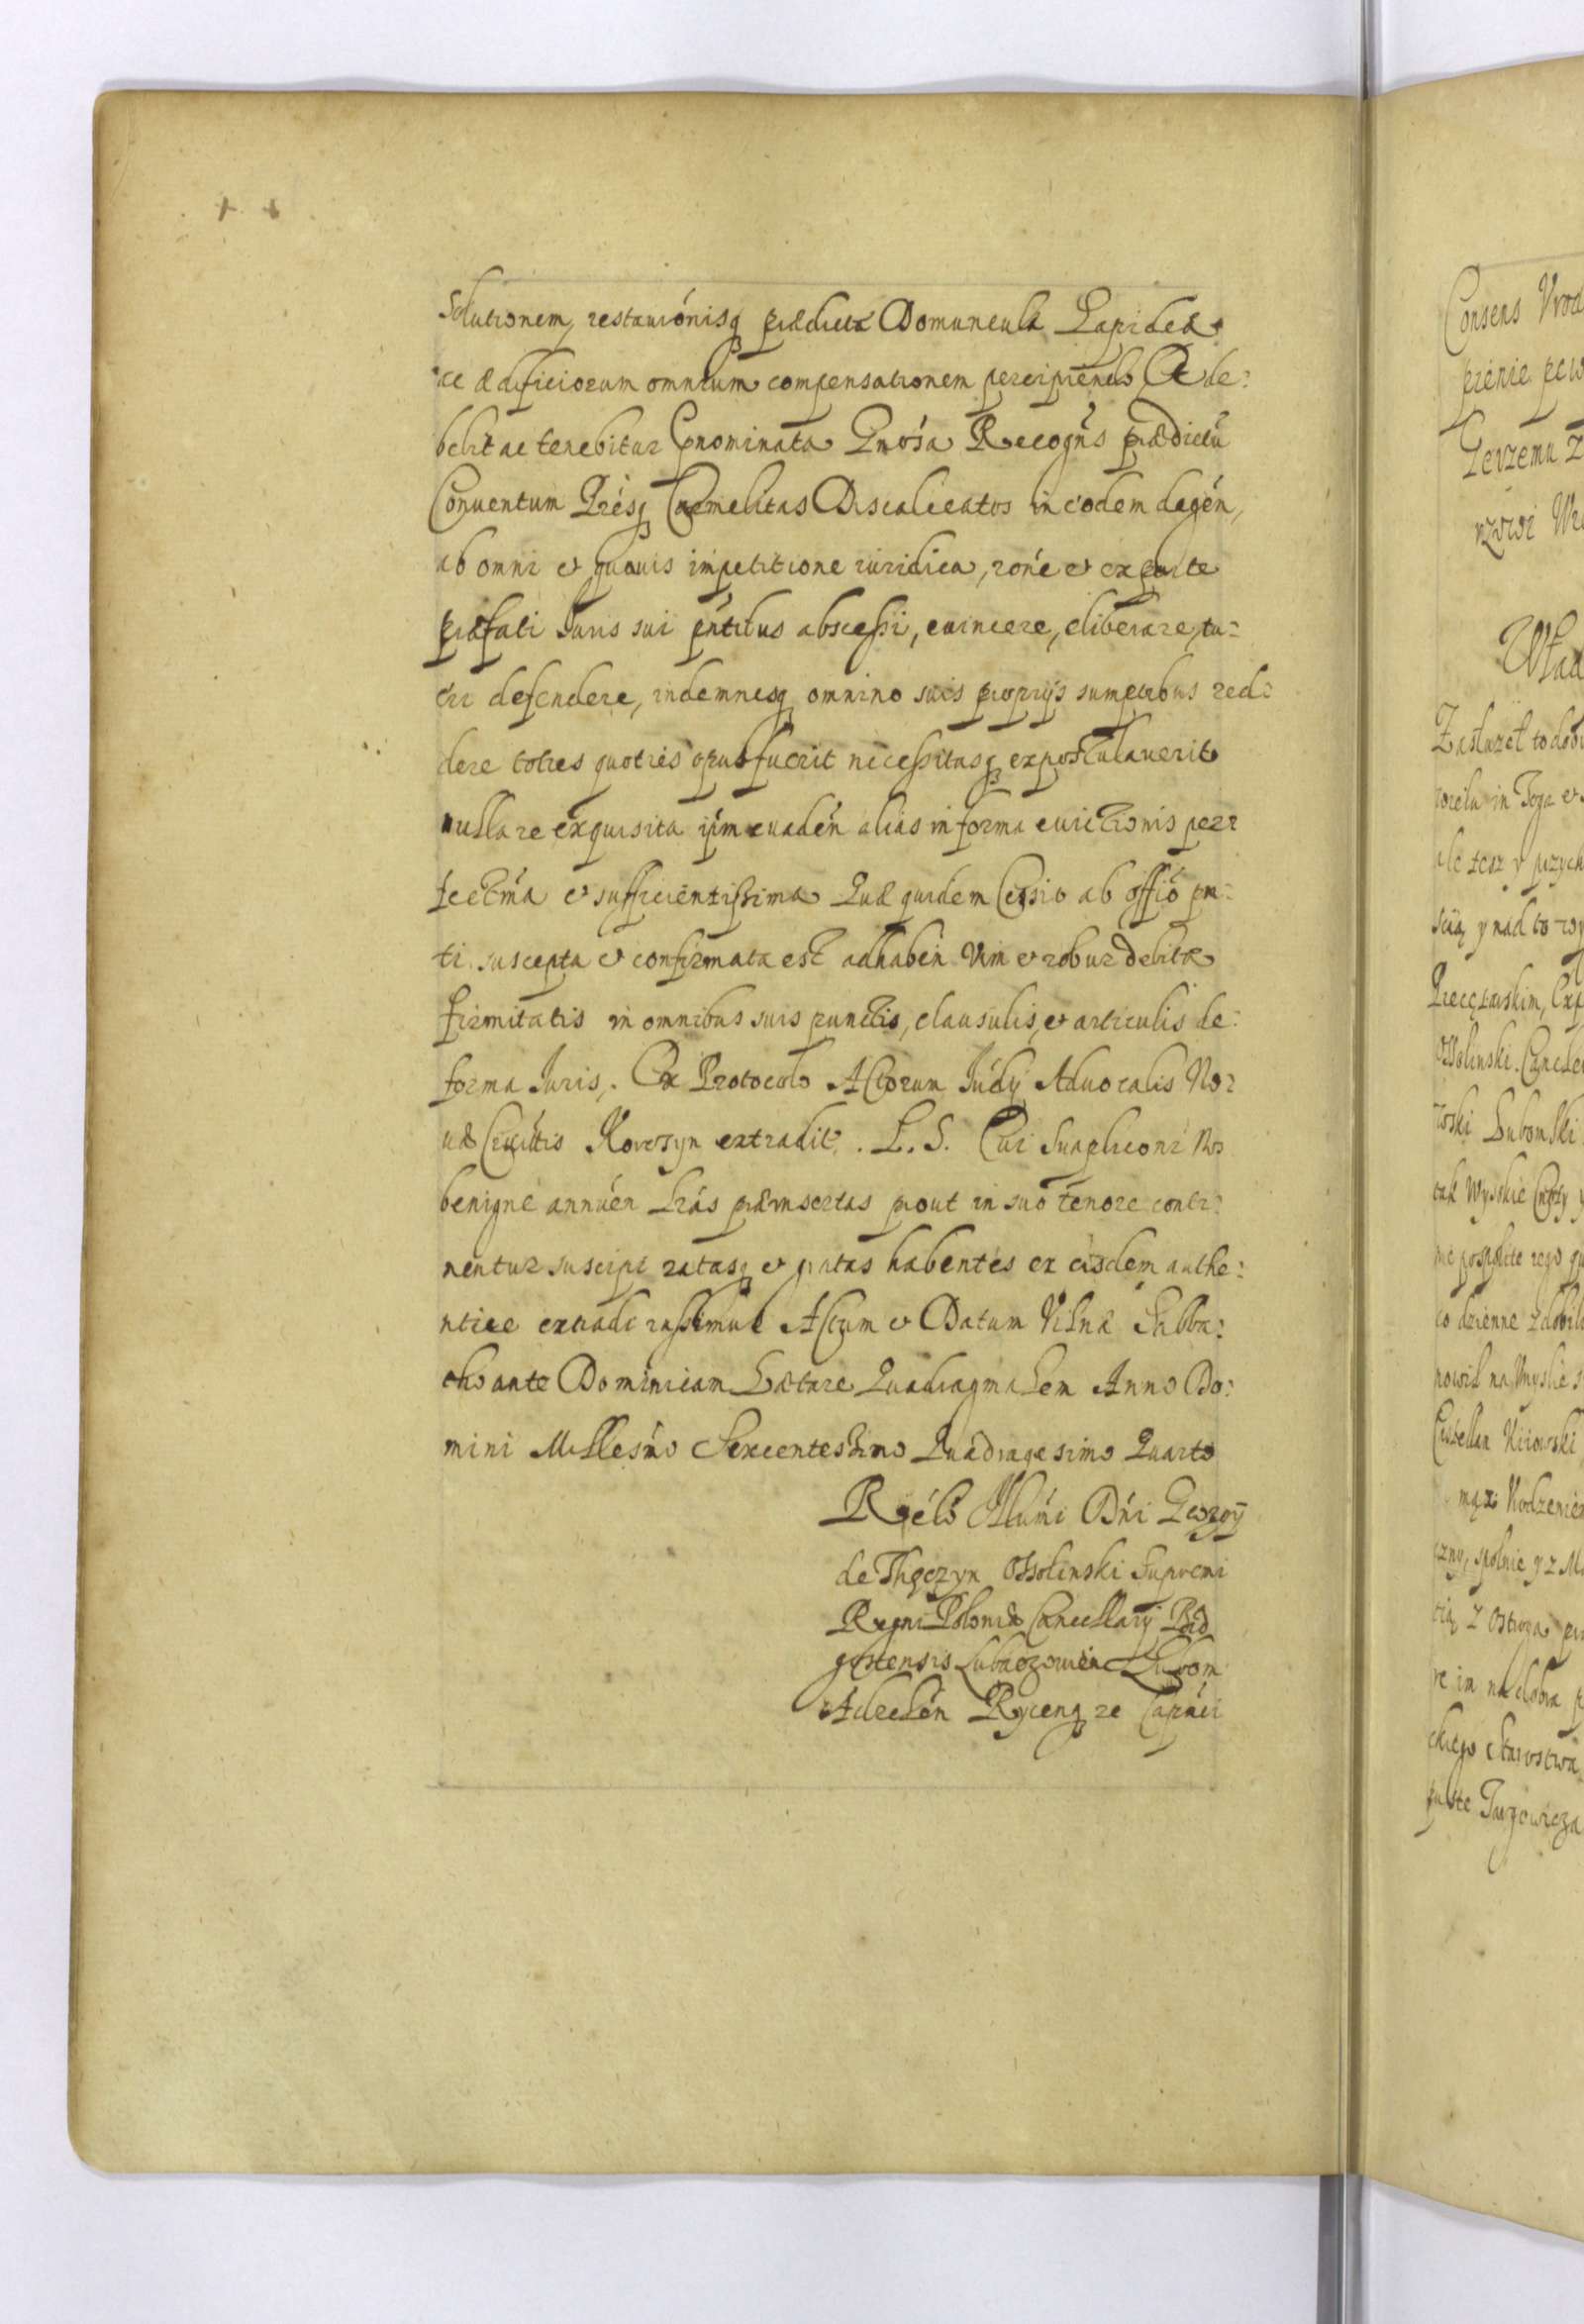 Solutionem, restaurónisq prædictæ Domunculæ Lapideæ
ac ædificiorum omnium compensationem percipiendo Ac de:
bebit ac tenebitur Pnominata Gnósa Recogñs prædictũ
Conuentum Prẽsq Carmelitas Discalceatos in eodem degéñ,
ab omni et quauis impetitione iuridica, róne et ex parte
præfati Juris sui pñtibus abscessi, euincere, eliberare, tu:
eri defendere, indemnesq omnino suis proprijs sumptibus red:
dere toties quoties opus fuerit necessitasq expostulauerit
nulla re exquisita ipm euadéñ alias in forma euictionis per:
fectmá et sufficientissima Quæ quidem Cessio ab offió pñ:
ti suscepta et confirmata est adhabéñ Vim et robur debitæ
firmitatis in omnibus suis punctis, clausulis, et articulis de:
forma Juris. Ex Protocolo Actorum Júdij Aduocalis No:
uæ Ciuittis Korosyn extradit. L. S. Cui Supplicóni Nos
benigne annuéñ Lrás præinsertas prout in suo tenore conti:
nentur suscipi ratasq et gratas habentes ex eisdem authe:
ntice extradi iussimus Actum et Datum Vilnæ Sabba:
tho ante Dominicam Lætare Quadragmalem Anno Do:
mini Millesmo Sexcentesimo Quadragesimo Quarto
Rélõ Illumi Dñi Georgÿ
de Thęczyn Ossolinski Supremi
Regni Poloniæ Cancellarÿ Bid
gostensis Lubaczouien Lubom
Adzelén Rycenq ze Capnéi
Consens Vrod
pienie pew
Jerzemu Z
Wład
Zasłuzeł to dobr
in Toga et
ale tesz y przych
scią y nad to wy
Ossolinski. Cancler
Lubomski
tak Wysokie Cnoty y
me pospolite rego
co dzienne zdobił
nowił na Vmyslie s
Casztellan Kiiowski
czny, spolnie y z M
cią z Ostroga
re im na dobra p
ckiego Starostwa
puste Targowicza